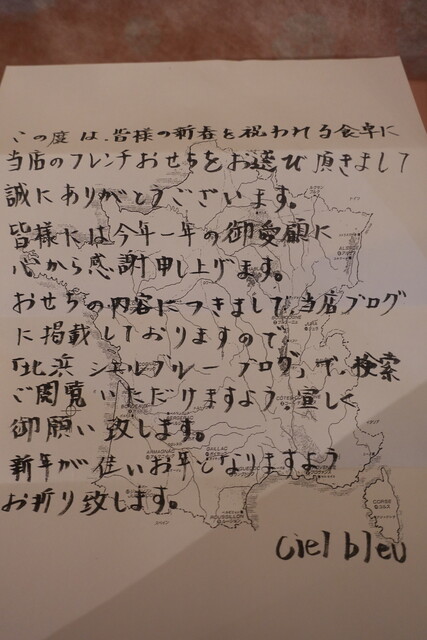 この度は、皆様の新春を祝われる食卓に
当店のフレンチおせちをお選び頂きまして
誠にありがとうございます。
皆様には今年一年の御愛顧に
心から感謝申し上げます。
おせちの内容につきまして、当店ブログ
に掲載しておりますので、
「北浜 シエルブルー ブログ」で、検索
ご閲覧いただけますよう、宜しく
御願い致します。
新年が佳いお年となりますよう
お祈り致します。
Ciel bleu
CORSE